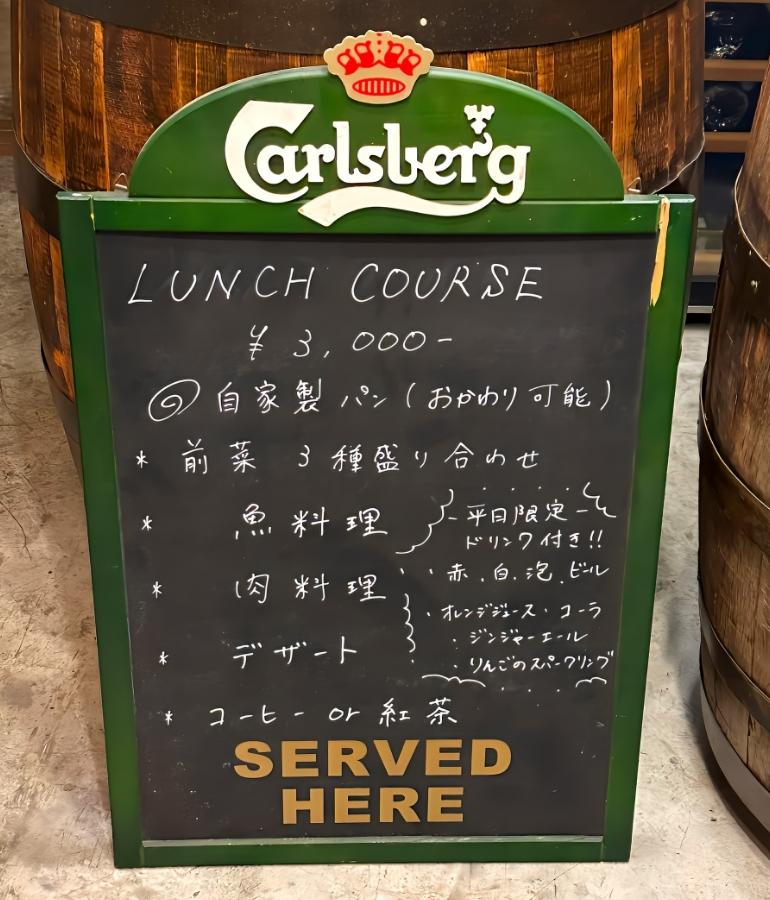 Carlsberg
LUNCH COURSE
¥ 3,000-
◎ 自家製 パン (おかわり可能)
* 前菜 3種盛り合わせ
* 魚料理
* 肉料理
* デザート
* コーヒー or 紅茶
- 平日限定 -
ドリンク付き!!
・赤.白.泡.ビール
・オレンジジュース・コーラ
・ジンジャーエール
・りんごのスパークリング
SERVED
HERE